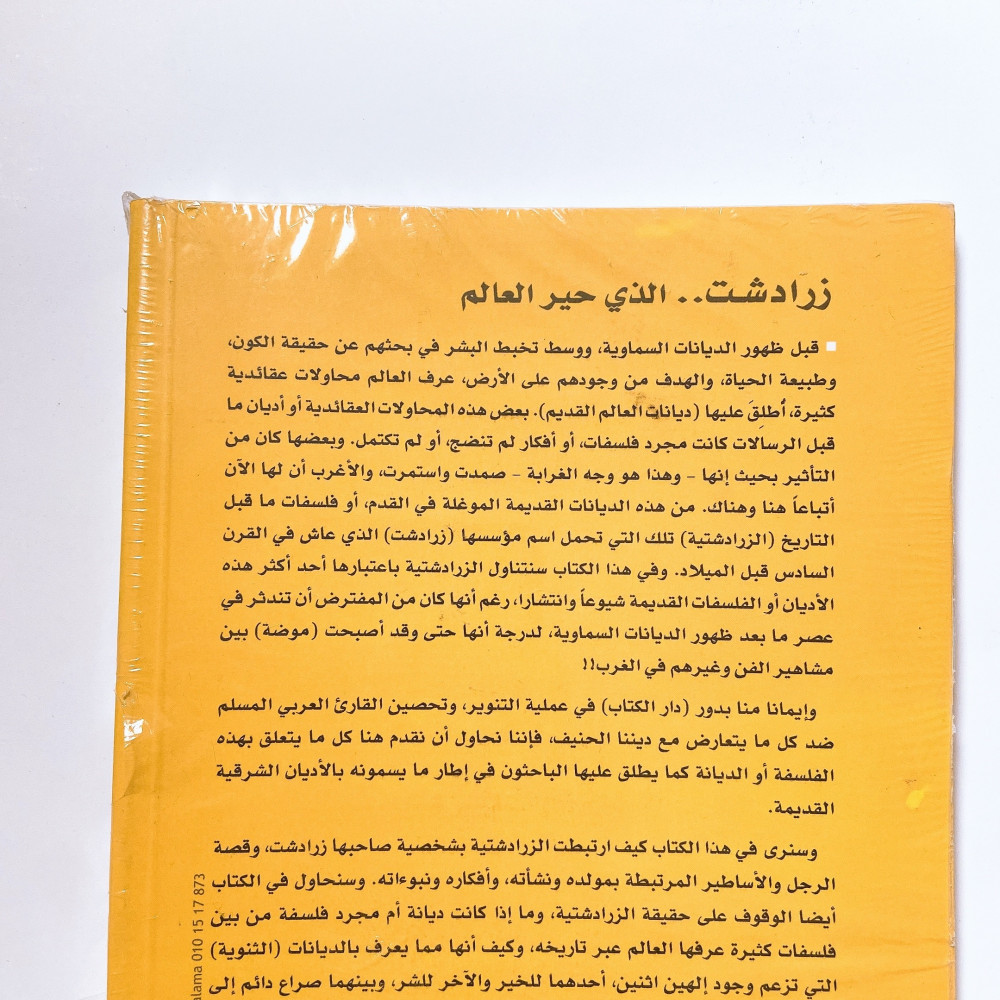 زرادشت.. الذي حير العالم
قبل ظهور الديانات السماوية، ووسط تخبط البشر في بحثهم عن حقيقة الكون،
وطبيعة الحياة، والهدف من وجودهم على الأرض، عرف العالم محاولات عقائدية
كثيرة، أُطلِقَ عليها (ديانات العالم القديم). بعض هذه المحاولات العقائدية أو أديان ما
قبل الرسالات كانت مجرد فلسفات، أو أفكار لم تنضج، أو لم تكتمل. وبعضها كان من
التأثير بحيث إنها - وهذا هو وجه الغرابة - صمدت واستمرت، والأغرب أن لها الآن
أتباعاً هنا وهناك. من هذه الديانات القديمة الموغلة في القدم، أو فلسفات ما قبل
التاريخ (الزرادشتية) تلك التي تحمل اسم مؤسسها (زرادشت) الذي عاش في القرن
السادس قبل الميلاد. وفي هذا الكتاب سنتناول الزرادشتية باعتبارها أحد أكثر هذه
الأديان أو الفلسفات القديمة شيوعاً وانتشارا، رغم أنها كان من المفترض أن تندثر في
عصر ما بعد ظهور الديانات السماوية، لدرجة أنها حتى وقد أصبحت (موضة) بين
مشاهير الفن وغيرهم في الغرب!!
وإيمانا منا بدور (دار الكتاب) في عملية التنوير، وتحصين القارئ العربي المسلم
ضد كل ما يتعارض مع ديننا الحنيف، فإننا نحاول أن نقدم هنا كل ما يتعلق بهذه
الفلسفة أو الديانة كما يطلق عليها الباحثون في إطار ما يسمونه بالأديان الشرقية
القديمة.
وسنرى في هذا الكتاب كيف ارتبطت الزرادشتية بشخصية صاحبها زرادشت، وقصة
الرجل والأساطير المرتبطة بمولده ونشأته، وأفكاره ونبوءاته. وسنحاول في الكتاب
أيضا الوقوف على حقيقة الزرادشتية، وما إذا كانت ديانة أم مجرد فلسفة من بين
فلسفات كثيرة عرفها العالم عبر تاريخه، وكيف أنها مما يعرف بالديانات (الثنوية)
التي تزعم وجود إلهين اثنين، أحدهما للخير والآخر للشر، وبينهما صراع دائم إلى
alama 010 15 17 873